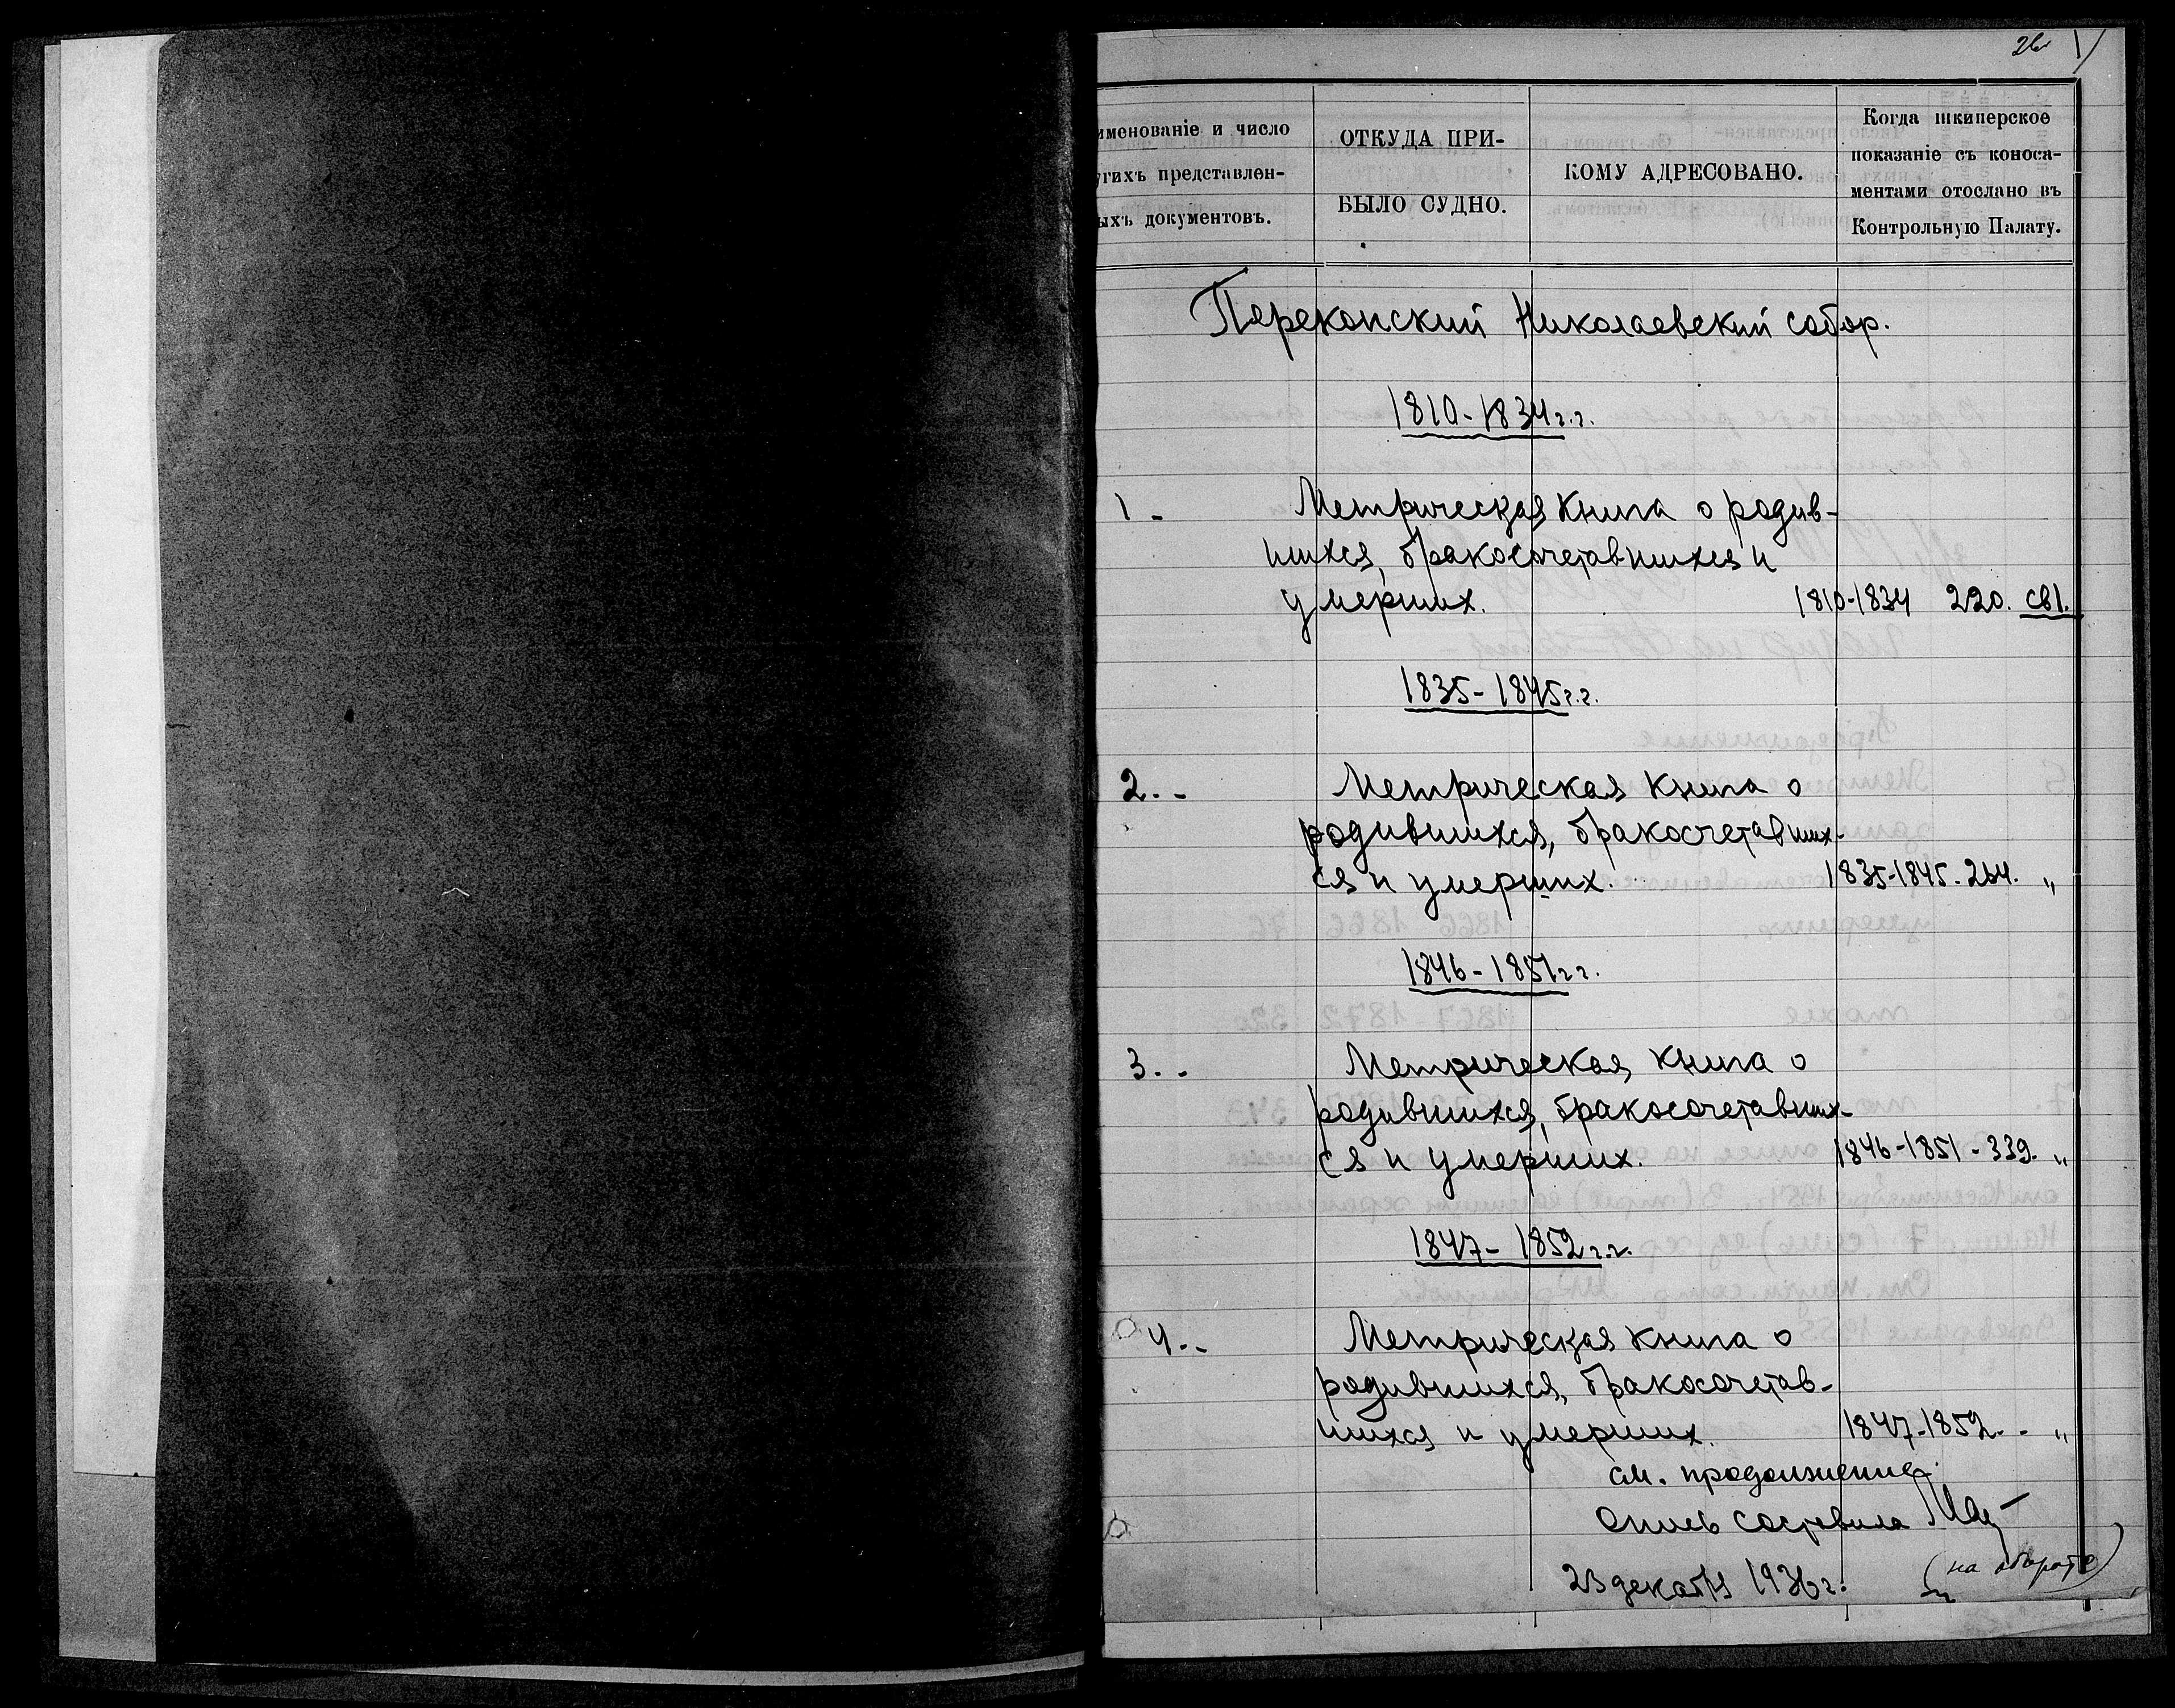 26
именованіе и число
угихъ представлен-
ыхъ документовъ.
ОТКУДА ПРИ-
БЫЛО СУДНО.
КОМУ АДРЕСОВАНО.
Когда шкиперское
показаніе съ коноса-
ментами отослано въ
Контрольную Палату.
Перекопский Николаевский собор.
1810-1834 г.г.
1 - Метрическая книга о родив-
шихся, бракосочетавшихся и
умерших. 1810-1834 220. св1.
1835-1845 г.г.
2. - Метрическая книга о
родившихся, бракосчетавших-
ся и умерших. 1835-1845. 264. "
1846-1851 г.г.
3. - Метрическая книга о
родившихся, бракосочетавших-
ся и умерших. 1846-1851 - 339. "
1847-1852 г.г.
4. - Метрическая книга о
родившихся, бракосочетав-
шихся и умерших. 1847-1852. - "
см. продолжение
Опись составила
23 декабря 1936 г. (на обороте)